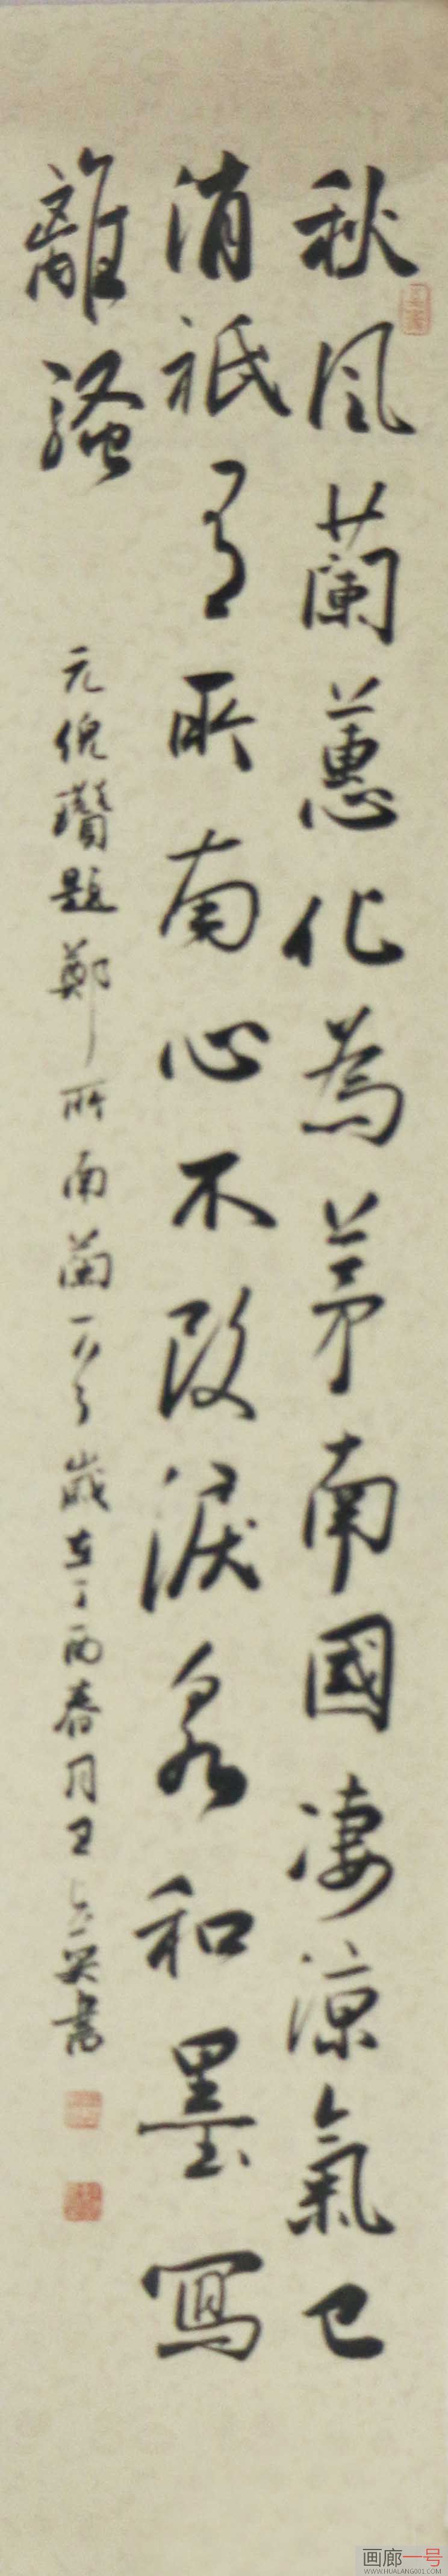 秋风蘭蕙化為茅南國凄涼氣已
消祇有所南心不改淚泉和墨寫
離騷
元倪瓚題鄭所南蘭一首歲在丁酉春月王書
画廊一号
WWW.HUALANG001.COM